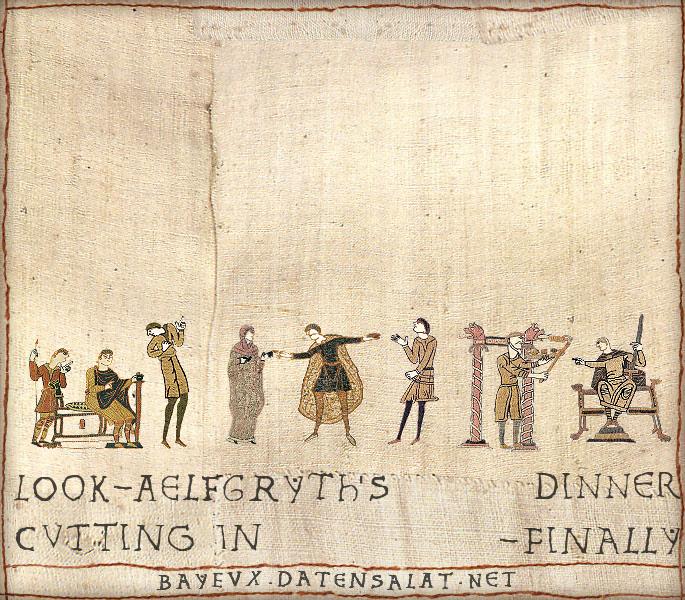 LOOK-AELFGRYTh'S
CVTTING IN
DINNER
-FINALLY
BAYEVX.DATENSALAT.NET